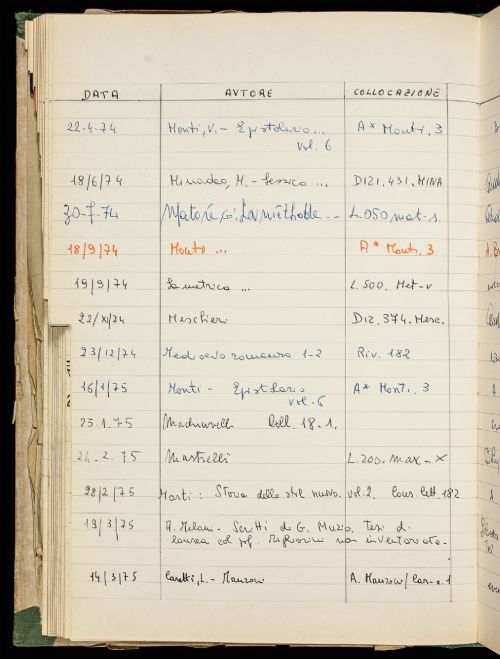 DATA AVTORE COLLOCAZIONE
22-4-74 Monti, V. - Epistolario ... A* Monti. 3
vol. 6
18/6/74 Minadeo, M. - Lessico ... DIZI. 431. MINA
30-7-74 Matoré, G: La méthode ... L.050 mat-1.
18/9/74 Monti ... A* Mont. 3
19/9/74 La metrica ... L.500. Met-v
22/XI/74 Meschieri DIZ. 374. Mesc.
23/12/74 Medioevo romanzo 1-2 Riv. 182
16/1/75 Monti - Epistolario A* Monti. 3
vol. 6
25.1.75 Coll. 18.1.
24.2.75 Mastrelli L.200.
28/2/75 Marti: Storia dello stil nuovo. vol 2. Cons. lett. 182
13/3/75 A. Melani - Scritti di G. Muzio. Tesi di
laurea col prof. non inventariata.
14/3/75 Caretti, L. - Manzoni A. Manzoni/Car-o.1